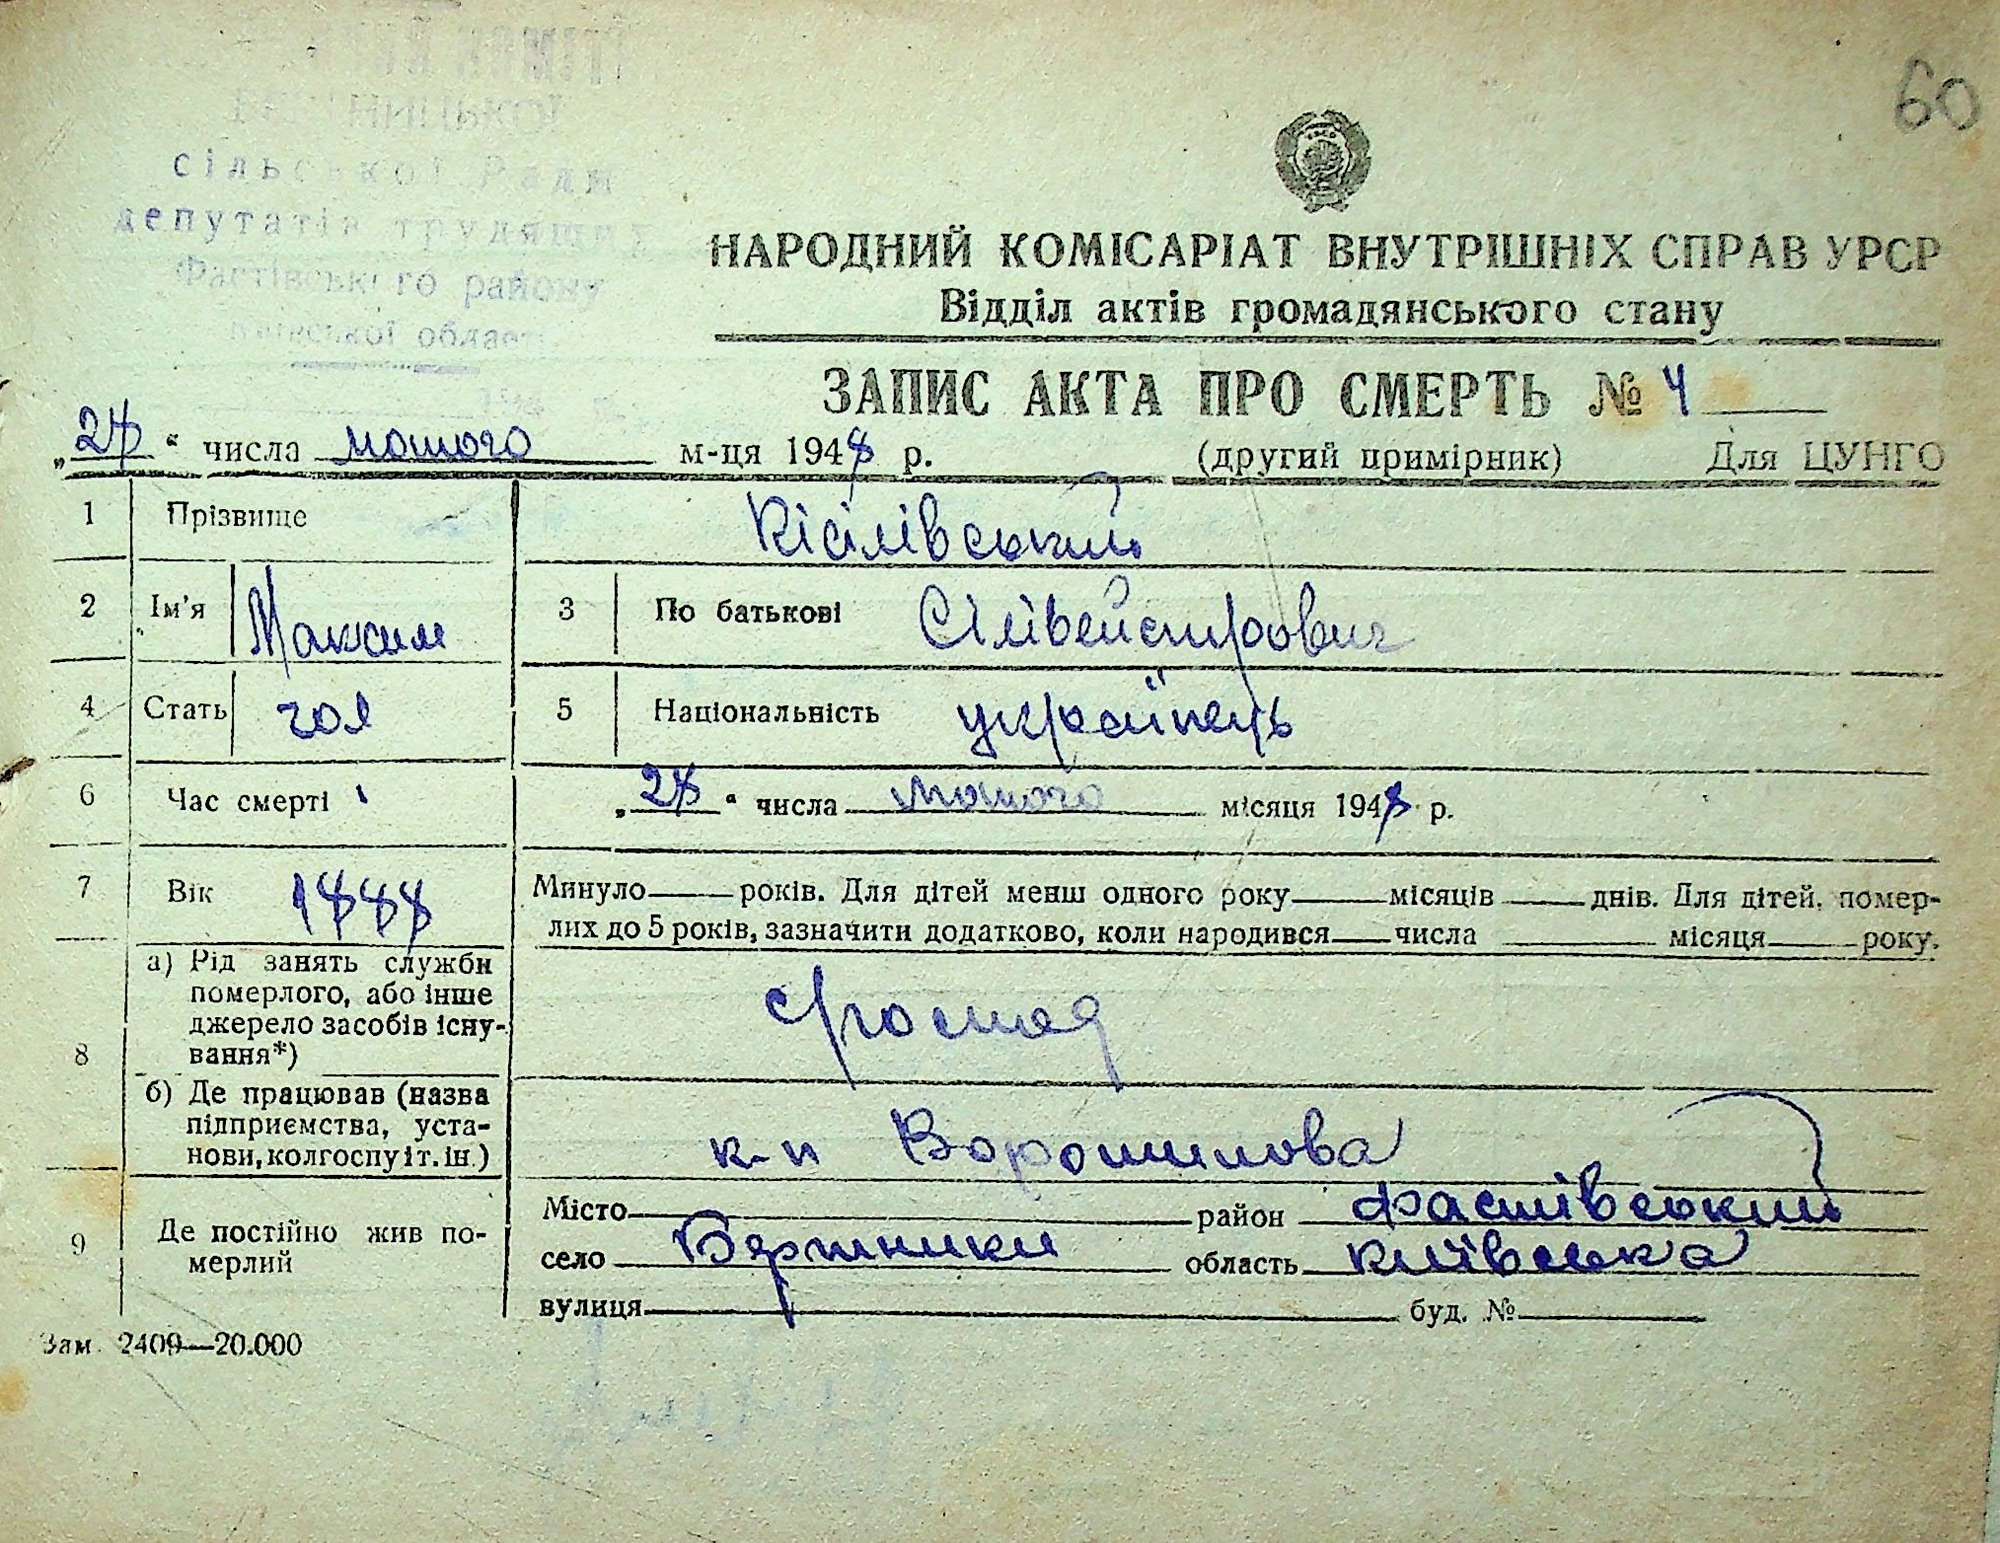 60
сільської Ради
депутатів трудящих
Фастівського району
Київської області
НАРОДНИЙ КОМІСАРІАТ ВНУТРІШНІХ СПРАВ УРСР
Відділ актів громадянського стану
ЗАПИС АКТА ПРО СМЕРТЬ № 4
„28“ числа лютого м-ця 1948 р. (другий примірник) Для ЦУНГО
1 Прізвище Кісілівський
2 Ім'я Максим 3 По батькові Сілівейстрович
4 Стать чол 5 Національність українець
6 Час смерті „28“ числа лютого місяця 1948 р.
7 Вік 1888 Минуло років. Для дітей менш одного року місяців днів. Для дітей, помер-
лих до 5 років, зазначити додатково, коли народився числа місяця року.
8 а) Рід занять служби
померлого, або інше
джерело засобів існу-
вання*)
б) Де працював (назва
підприємства, уста-
нови, колгоспу і т. ін.)
к-п Ворошилова
9 Де постійно жив по-
мерлий
Місто район Фастівський
село область київська
вулиця буд. №
Зам. 2409—20.000